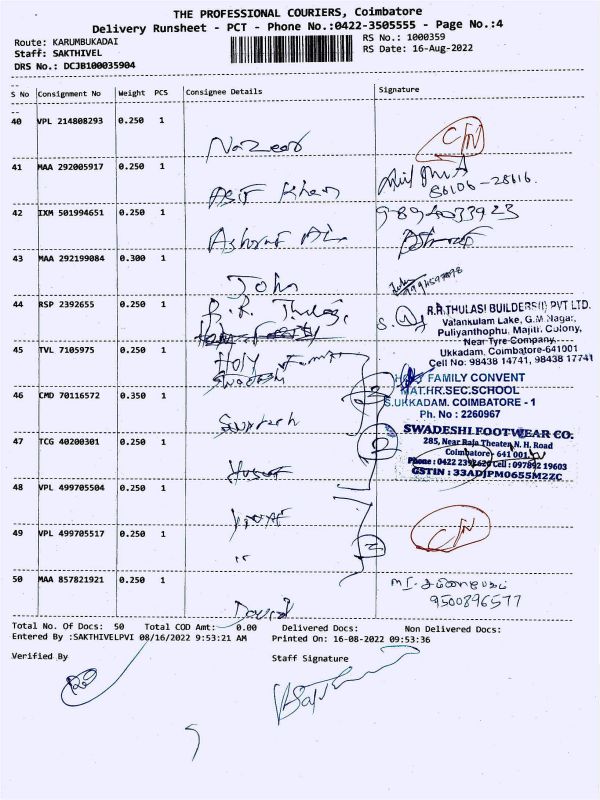 THE PROFESSIONAL COURIERS, Coimbatore
Delivery Runsheet - PCT - Phone No.:0422-3505555 - Page No.:4
Route: KARUMBUKADAI
Staff: SAKTHIVEL
DRS No.: DCJB100035904
RS No.: 1000359
RS Date: 16-Aug-2022
S No Consignment No Weight PCS Consignee Details Signature
40 VPL 214808293 0.250 1
Nazeer
C/N
41 MAA 292005917 0.250 1
Asif Khan
86106-28616.
42 IXM 501994651 0.250 1
9894033923
Ashraf Ali
43 MAA 292199084 0.300 1
John
44 RSP 2392655 0.250 1
R.R. Thulasi
R.R.THULASI BUILDERS(I) PVT LTD.
Valankulam Lake, G.M.Nagar,
Puliyanthophu, Majith Colony,
Near Tyre Company,
Ukkadam, Coimbatore-641001
Cell No: 98438 14741, 98438 17741
45 TVL 7105975 0.250 1
Holy Family
HOLY FAMILY CONVENT
MAT.HR.SEC.SCHOOL
S.UKKADAM. COIMBATORE - 1
Ph. No : 2260967
46 CMD 70116572 0.350 1
SWADESHI FOOTWEAR CO.
285, Near Raja Theater, N. H. Road
Coimbatore - 641 001.
GSTIN : 33ADJPM0655M2ZC
47 TCG 40200301 0.250 1
48 VPL 499705504 0.250 1
49 VPL 499705517 0.250 1
"
C/N
2
50 MAA 857821921 0.250 1
David
9500896577
Total No. Of Docs: 50 Total COD Amt: 0.00 Delivered Docs: Non Delivered Docs:
Entered By :SAKTHIVELPVI 08/16/2022 9:53:21 AM Printed On: 16-08-2022 09:53:36
Verified By Staff Signature